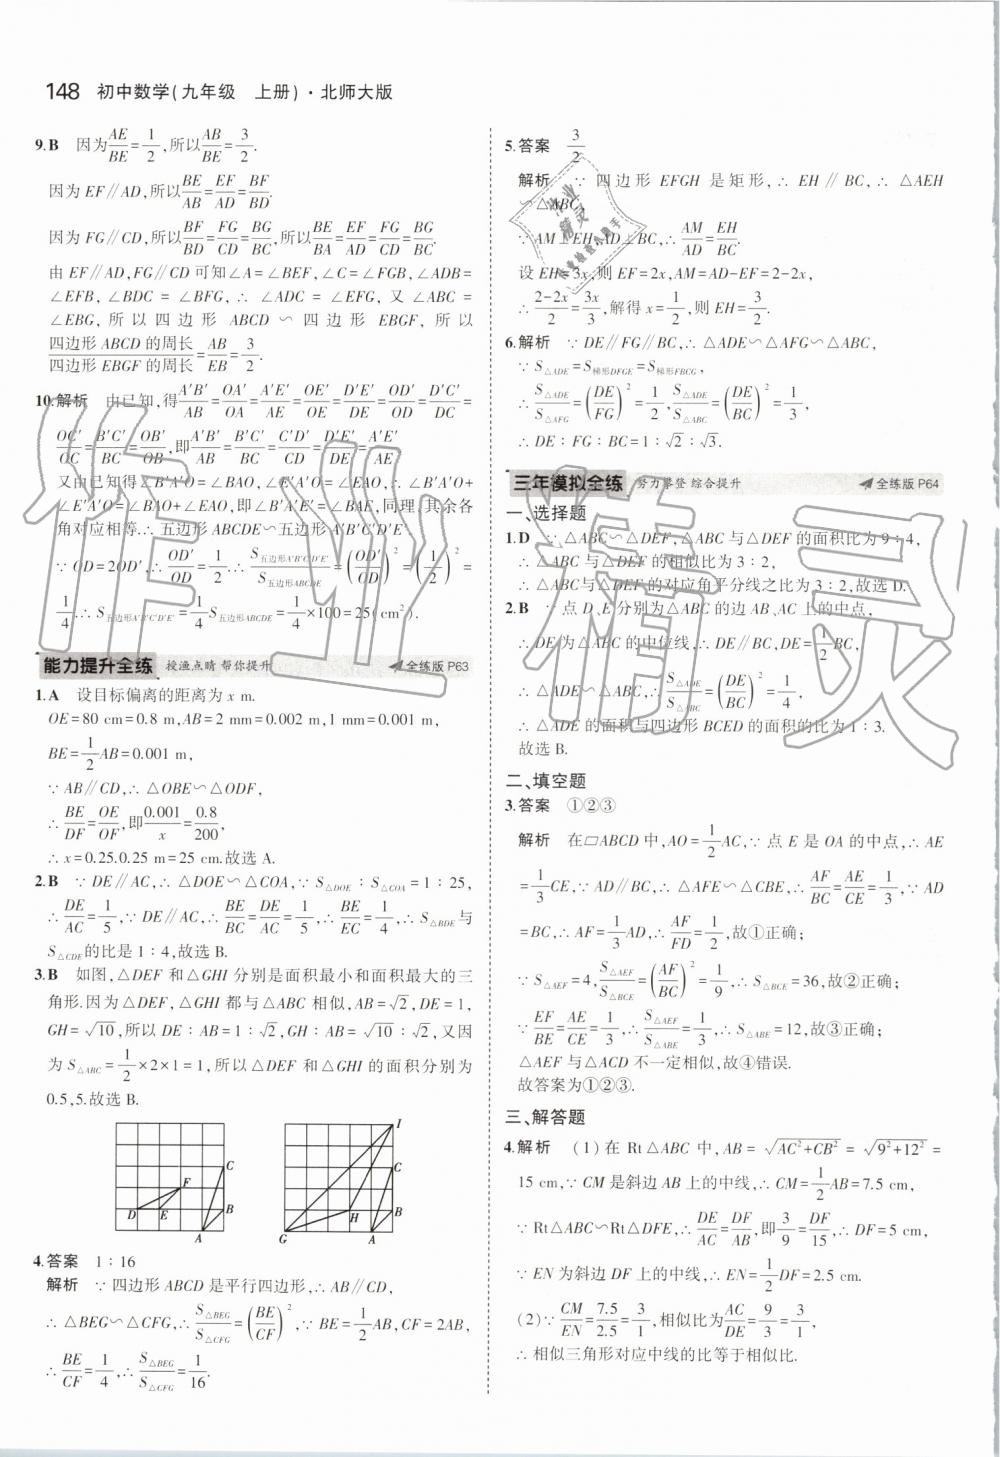 148 初中数学(九年级 上册)·北师大版
9.B 因为AE/BE=1/2,所以AB/BE=3/2.
因为EF∥AD,所以BE/AB=EF/AD=BF/BD.
因为FG∥CD,所以BF/BD=FG/CD=BG/BC,所以BE/BA=EF/AD=FG/CD=BG/BC.
由EF∥AD,FG∥CD可知∠A=∠BEF,∠C=∠FGB,∠ADB=
∠EFB,∠BDC=∠BFG,∴∠ADC=∠EFG,又∠ABC=
∠EBG,所以四边形ABCD∽四边形EBGF,所以
四边形ABCD的周长/四边形EBGF的周长=AB/EB=3/2.
10.解析 由已知,得A′B′/AB=OA′/OA=A′E′/AE=OE′/OE=D′E′/DE=OD′/OD=D′C′/DC=
OC′/OC=B′C′/BC=OB′/OB,即A′B′/AB=B′C′/BC=C′D′/CD=D′E′/DE=A′E′/AE.
又由已知得∠B′A′O=∠BAO,∠E′A′O=∠EAO,∴∠B′A′O+
∠E′A′O=∠BAO+∠EAO,即∠B′A′E′=∠BAE,同理,其余各
角对应相等.∴五边形ABCDE∽五边形A′B′C′D′E′.
∵OD=2OD′,∴OD′/OD=1/2,∴S五边形A′B′C′D′E′/S五边形ABCDE=(OD′/OD)²=(1/2)²=
1/4.∴S五边形A′B′C′D′E′=1/4S五边形ABCDE=1/4×100=25(cm²).
能力提升全练 授渔点睛 帮你提升 全练版P63
1.A 设目标偏离的距离为x m.
OE=80 cm=0.8 m,AB=2 mm=0.002 m,1 mm=0.001 m,
BE=1/2AB=0.001 m,
∵AB∥CD,∴△OBE∽△ODF,
∴BE/DF=OE/OF,即0.001/x=0.8/200,
∴x=0.25.0.25 m=25 cm.故选A.
2.B ∵DE∥AC,∴△DOE∽△COA,∵S△DOE∶S△COA=1∶25,
∴DE/AC=1/5,∵DE∥AC,∴BE/BC=DE/AC=1/5,∴BE/EC=1/4,∴S△BDE与
S△CDE的比是1∶4,故选B.
3.B 如图,△DEF和△GHI分别是面积最小和面积最大的三
角形.因为△DEF,△GHI都与△ABC相似,AB=√2,DE=1,
GH=√10,所以DE∶AB=1∶√2,GH∶AB=√10∶√2,又因
为S△ABC=1/2×2×1=1,所以△DEF和△GHI的面积分别为
0.5,5.故选B.
D E F A B C
G H I A B C
4.答案 1∶16
解析 ∵四边形ABCD是平行四边形,∴AB∥CD,
∴△BEG∽△CFG,∴S△BEG/S△CFG=(BE/CF)²,∵BE=1/2AB,CF=2AB,
∴BE/CF=1/4,∴S△BEG/S△CFG=1/16.
5.答案 3/2
解析 ∵四边形EFGH是矩形,∴EH∥BC,∴△AEH
∽△ABC,
∵AM⊥EH,AD⊥BC,∴AM/AD=EH/BC.
设EH=3x,则EF=2x,AM=AD-EF=2-2x,
∴(2-2x)/2=3x/3,解得x=1/2,则EH=3/2.
6.解析 ∵DE∥FG∥BC,∴△ADE∽△AFG∽△ABC,
∵S△ADE=S梯形DFGE=S梯形FBCG,
∴S△ADE/S△AFG=(DE/FG)²=1/2,S△ADE/S△ABC=(DE/BC)²=1/3,
∴DE∶FG∶BC=1∶√2∶√3.
三年模拟全练 努力攀登 综合提升 全练版P64
一、选择题
1.D ∵△ABC∽△DEF,△ABC与△DEF的面积比为9∶4,
∴△ABC与△DEF的相似比为3∶2,
∴△ABC与△DEF的对应角平分线之比为3∶2,故选D.
2.B ∵点D、E分别为△ABC的边AB、AC上的中点,
∴DE为△ABC的中位线,∴DE∥BC,DE=1/2BC,
∴△ADE∽△ABC,∴S△ADE/S△ABC=(DE/BC)²=1/4,
∴△ADE的面积与四边形BCED的面积的比为1∶3.
故选B.
二、填空题
3.答案 ①②③
解析 在▱ABCD中,AO=1/2AC,∵点E是OA的中点,∴AE
=1/3CE,∵AD∥BC,∴△AFE∽△CBE,∴AF/BC=AE/CE=1/3,∵AD
=BC,∴AF=1/3AD,∴AF/FD=1/2,故①正确;
∵S△AEF=4,S△AEF/S△BCE=(AF/BC)²=1/9,∴S△BCE=36,故②正确;
∵EF/BE=AE/CE=1/3,∴S△AEF/S△ABE=1/3,∴S△ABE=12,故③正确;
△AEF与△ACD不一定相似,故④错误.
故答案为①②③.
三、解答题
4.解析 (1)在Rt△ABC中,AB=√(AC²+CB²)=√(9²+12²)=
15 cm,∵CM是斜边AB上的中线,∴CM=1/2AB=7.5 cm,
∵Rt△ABC∽Rt△DFE,∴DE/AC=DF/AB,即3/9=DF/15,∴DF=5 cm,
∵EN为斜边DF上的中线,∴EN=1/2DF=2.5 cm.
(2)∵CM/EN=7.5/2.5=3/1,相似比为AC/DE=9/3=3/1,
∴相似三角形对应中线的比等于相似比.
作业精灵